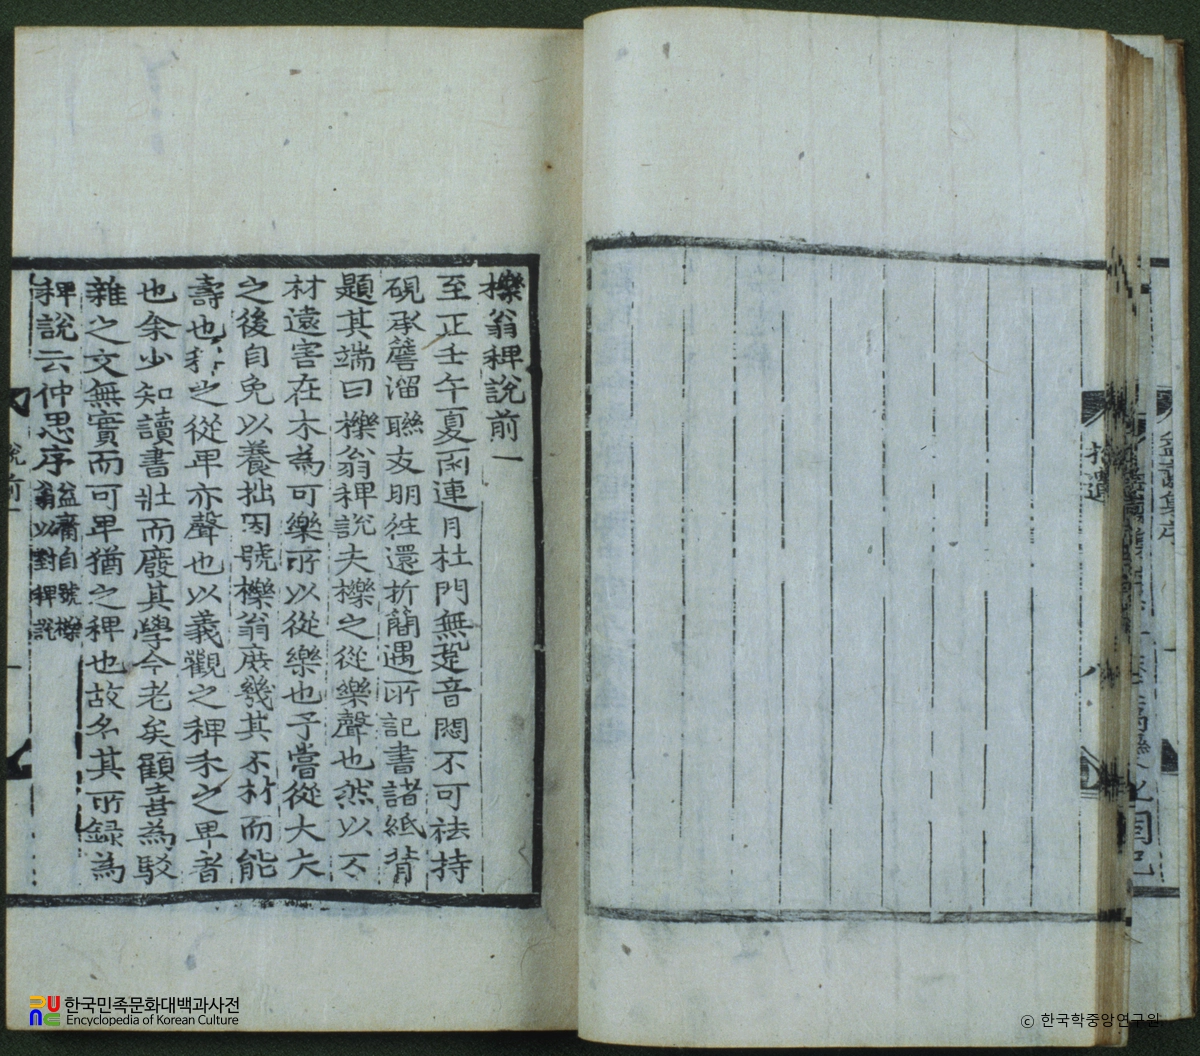 櫟翁稗說前一
至正壬午夏雨連月杜門無跫音悶不可祛持
硯承簷溜聯友朋往還折簡遇所記書諸紙背
題其端曰櫟翁稗說夫櫟之從樂聲也然以不
材遠害在木為可樂所以從樂也予嘗從大夫
之後自免以養拙因號櫟翁庶幾其不材而能
壽也稗之從卑亦聲也以義觀之稗禾之卑者
也余少知讀書壯而廢其學今老矣顧喜為駁
雜之文無實而可卑猶之稗也故名其所錄為
稗說云仲思序
益齋自號櫟
翁以對稗說
說前一
拾遺
益齋集序
한국민족문화대백과사전
Encyclopedia of Korean Culture
© 한국학중앙연구원